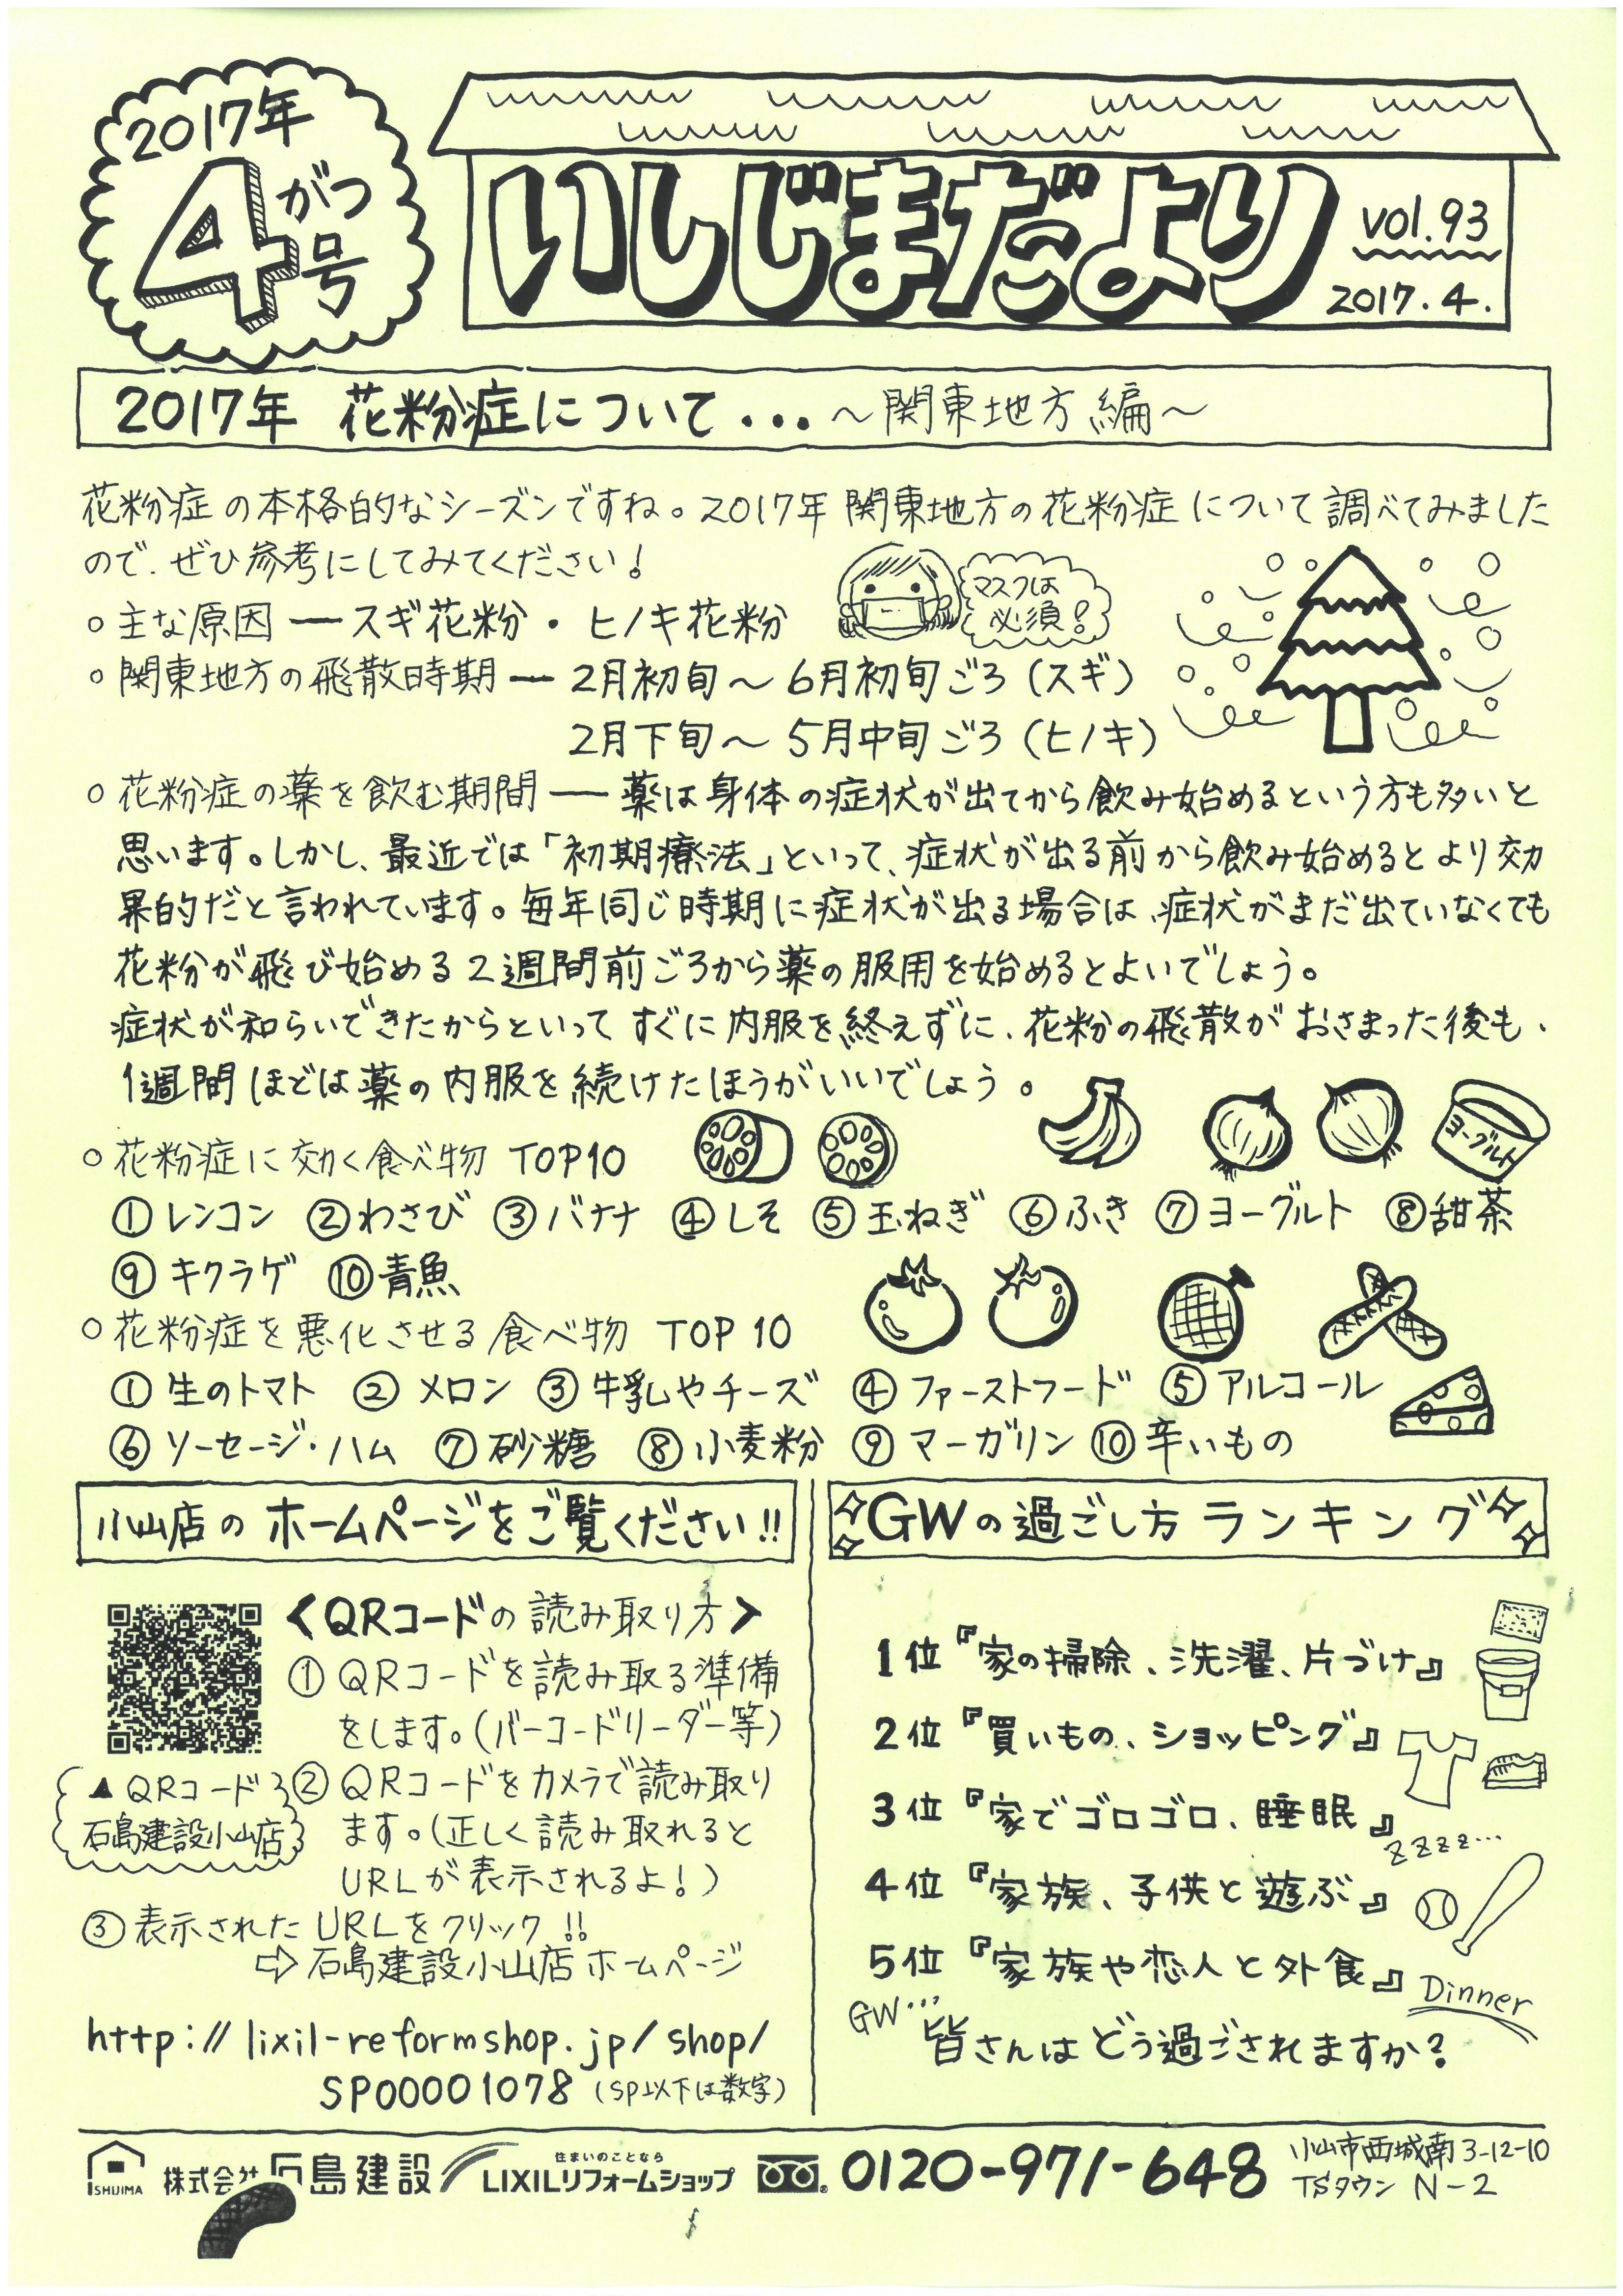 2017年
4がつ号
いしじまだより
vol.93
2017.4.
2017年 花粉症について・・・～関東地方編～
花粉症の本格的なシーズンですね。2017年関東地方の花粉症について調べてみました
ので、ぜひ参考にしてみてください！
マスクは
必須！
○主な原因ースギ花粉・ヒノキ花粉
○関東地方の飛散時期ー2月初旬～6月初旬ごろ（スギ）
2月下旬～5月中旬ごろ（ヒノキ）
○花粉症の薬を飲む期間ー薬は身体の症状が出てから飲み始めるという方も多いと
思います。しかし、最近では「初期療法」といって、症状が出る前から飲み始めるとより効
果的だと言われています。毎年同じ時期に症状が出る場合は、症状がまだ出ていなくても
花粉が飛び始める2週間前ごろから薬の服用を始めるとよいでしょう。
症状が和らいできたからといってすぐに内服を終えずに、花粉の飛散がおさまった後も、
1週間ほどは薬の内服を続けたほうがいいでしょう。
ヨーグルト
○花粉症に効く食べ物 TOP10
①レンコン ②わさび ③バナナ ④しそ ⑤玉ねぎ ⑥ふき ⑦ヨーグルト ⑧甜茶
⑨キクラゲ ⑩青魚
○花粉症を悪化させる食べ物 TOP10
①生のトマト ②メロン ③牛乳やチーズ ④ファーストフード ⑤アルコール
⑥ソーセージ・ハム ⑦砂糖 ⑧小麦粉 ⑨マーガリン ⑩辛いもの
小山店のホームページをご覧ください!!
<QRコードの読み取り方>
①QRコードを読み取る準備
をします。（バーコードリーダー等）
▲QRコード
石島建設小山店
②QRコードをカメラで読み取り
ます。（正しく読み取れると
URLが表示されるよ！）
③表示されたURLをクリック!!
⇨石島建設小山店ホームページ
http://lixil-reformshop.jp/shop/
SP00001078（SP以下は数字）
GWの過ごし方ランキング
1位『家の掃除、洗濯、片づけ』
2位『買いもの、ショッピング』
3位『家でゴロゴロ、睡眠』
zzzz...
4位『家族、子供と遊ぶ』
5位『家族や恋人と外食』
Dinner
GW…
皆さんはどう過ごされますか？
ISHIJIMA
株式会社 石島建設
住まいのことなら
LIXILリフォームショップ
0120-971-648
小山市西城南3-12-10
TSタウン N-2